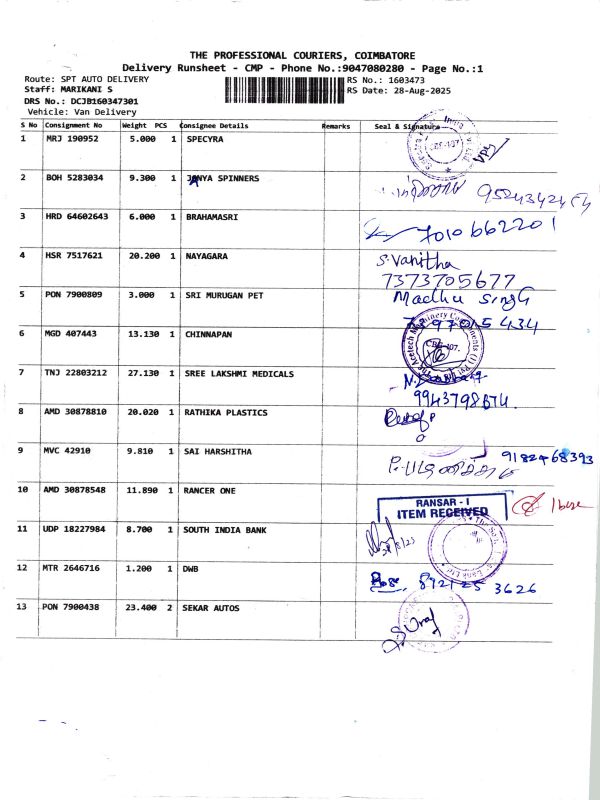 THE PROFESSIONAL COURIERS, COIMBATORE
Delivery Runsheet - CMP - Phone No.:9047080280 - Page No.:1
Route: SPT AUTO DELIVERY RS No.: 1603473
Staff: MARIKANI S RS Date: 28-Aug-2025
DRS No.: DCJB160347301
Vehicle: Van Delivery
S No Consignment No Weight PCS Consignee Details Remarks Seal & Signature
1 MRJ 190952 5.000 1 SPECYRA
2 BOH 5283034 9.300 1 JANYA SPINNERS
3 HRD 64602643 6.000 1 BRAHAMASRI 7010662201
4 HSR 7517621 20.200 1 NAYAGARA S.Vanitha
7373705677
5 PON 7900809 3.000 1 SRI MURUGAN PET Madhu Singh
6 MGD 407443 13.130 1 CHINNAPAN
7 TNJ 22803212 27.130 1 SREE LAKSHMI MEDICALS
8 AMD 30878810 20.020 1 RATHIKA PLASTICS
9 MVC 42910 9.810 1 SAI HARSHITHA 9182468393
10 AMD 30878548 11.890 1 RANCER ONE RANSAR - I
ITEM RECEIVED
11 UDP 18227984 8.700 1 SOUTH INDIA BANK
12 MTR 2646716 1.200 1 DWB 3626
13 PON 7900438 23.400 2 SEKAR AUTOS